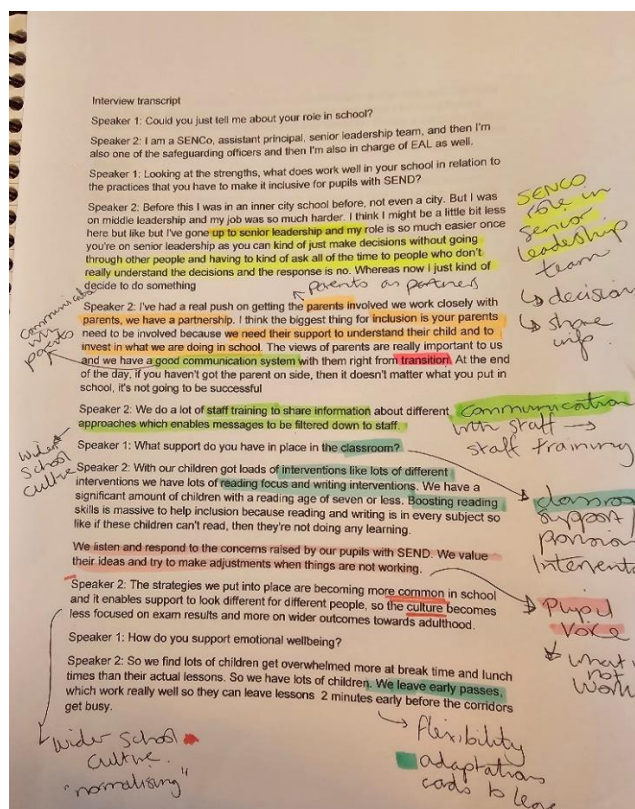 Interview transcript
Speaker 1: Could you just tell me about your role in school?
Speaker 2: I am a SENCo, assistant principal, senior leadership team, and then I'm
also one of the safeguarding officers and then I'm also in charge of EAL as well.
Speaker 1: Looking at the strengths, what does work well in your school in relation to
the practices that you have to make it inclusive for pupils with SEND?
Speaker 2: Before this I was in an inner city school before, not even a city. But I was
on middle leadership and my job was so much harder. I think I might be a little bit less
here but like but I've gone up to senior leadership and my role is so much easier once
you're on senior leadership as you can kind of just make decisions without going
through other people and having to kind of ask all of the time to people who don't
really understand the decisions and the response is no. Whereas now I just kind of
decide to do something
SENCO
role in
senior
leadership
team
↳ decision
↳ share
info.
Parents as partners
Speaker 2: I've had a real push on getting the parents involved we work closely with
parents, we have a partnership. I think the biggest thing for inclusion is your parents
need to be involved because we need their support to understand their child and to
invest in what we are doing in school. The views of parents are really important to us
and we have a good communication system with them right from transition. At the end
of the day, if you haven't got the parent on side, then it doesn't matter what you put in
school, it's not going to be successful
with
parents
Speaker 2: We do a lot of staff training to share information about different
approaches which enables messages to be filtered down to staff.
Communication
with staff →
staff training
Speaker 1: What support do you have in place in the classroom?
wider
school
culture
Speaker 2: With our children got loads of interventions like lots of different
interventions we have lots of reading focus and writing interventions. We have a
significant amount of children with a reading age of seven or less. Boosting reading
skills is massive to help inclusion because reading and writing is in every subject so
like if these children can't read, then they're not doing any learning.
support
provision
We listen and respond to the concerns raised by our pupils with SEND. We value
their ideas and try to make adjustments when things are not working.
Speaker 2: The strategies we put into place are becoming more common in school
and it enables support to look different for different people, so the culture becomes
less focused on exam results and more on wider outcomes towards adulthood.
Pupil
voice
what
not
work
Speaker 1: How do you support emotional wellbeing?
Speaker 2: So we find lots of children get overwhelmed more at break time and lunch
times than their actual lessons. So we have lots of children. We leave early passes,
which work really well so they can leave lessons 2 minutes early before the corridors
get busy.
wider school
culture.
"normalising"
flexibility
adaptations
cards to leave